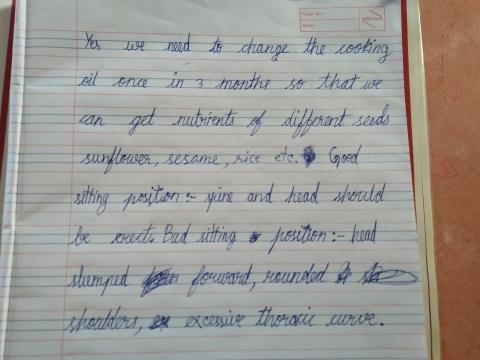 Page No.:
Date:
YOUVA
Yes we need to change the cooking
oil once in 3 months so that we
can get nutrients of different seeds
sunflower, sesame, rice etc. Good
sitting position:- spine and head should
be erect. Bad sitting position:- head
slumped forward, rounded
shoulders, excessive thoracic curve.